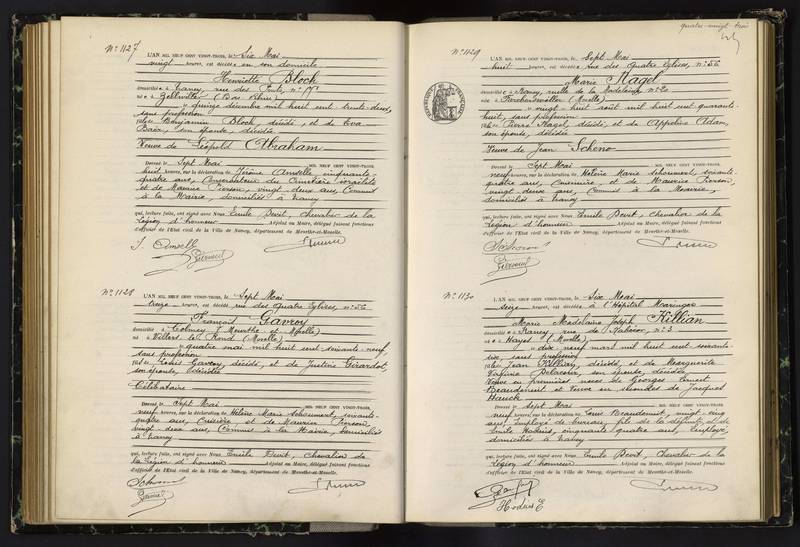 quatre-vingt trois
N° 1127
L'AN MIL NEUF CENT VINGT-TROIS, le Six Mai
vingt heures, est décédée en son domicile
Henriette Bloch
domiciliée à Nancy, rue des Ponts, n°
née à Zellwiller (Bas Rhin)
le quinze décembre mil huit cent trente deux,
sans profession
fille de Benjamin Bloch décédé, et de Eva
Baër, son épouse, décédée
Veuve de Léopold Abraham
Devant le Sept Mai MIL NEUF CENT VINGT-TROIS,
huit heures, sur la déclaration de Jérôme Anselle cinquante-
quatre ans, Conservateur du Cimetière israélite
et de Maurice Pierson, vingt deux ans, Commis
à la Mairie, domiciliés à Nancy
qui, lecture faite, ont signé avec Nous Emile Devit, chevalier de la
Légion d'honneur Adjoint au Maire, délégué faisant fonctions
d'officier de l'Etat civil de la Ville de Nancy, département de Meurthe-et-Moselle.
J. Anselle
Pierson
N° 1128
L'AN MIL NEUF CENT VINGT-TROIS, le Sept Mai
treize heures, est décédé rue des Quatre Eglises, n° 56
François Gavroy
domicilié à Colmey (Meurthe et Moselle)
né à Villers le Rond (Moselle)
le quatre mai mil huit cent soixante-neuf,
sans profession
fils de Louis Gavroy, décédé, et de Justine Girardot,
son épouse, décédée
Célibataire
Devant le Sept Mai MIL NEUF CENT VINGT-TROIS,
neuf heures, sur la déclaration de Hélène Marie Schoumert, soixante-
quatre ans, Ouvrière, et de Maurice Pierson,
vingt deux ans, Commis à la Mairie, domiciliés
à Nancy
qui, lecture faite, ont signé avec Nous Emile Devit, Chevalier de
la Légion d'honneur Adjoint au Maire, délégué faisant fonctions
d'officier de l'Etat civil de la Ville de Nancy, département de Meurthe-et-Moselle.
Pierson
N° 1129
L'AN MIL NEUF CENT VINGT-TROIS, le Sept Mai
huit heures, est décédée rue des Quatre Eglises, n° 56
Marie Nagel
domiciliée à Nancy, ruelle de la Madeleine, n° 20
née à Farebersviller (Moselle)
le vingt huit août mil huit cent quarante-
huit, sans profession
fille de Pierre Nagel, décédé, et de Appoline Adam,
son épouse, décédée
Veuve de Jean Scheno
Devant le Sept Mai MIL NEUF CENT VINGT-TROIS,
neuf heures, sur la déclaration de Hélène Marie Schoumert, soixante-
quatre ans, Ouvrière, et de Maurice Pierson,
vingt deux ans, Commis à la Mairie,
domiciliés à Nancy
qui, lecture faite, ont signé avec Nous Emile Devit, chevalier de la
Légion d'honneur Adjoint au Maire, délégué faisant fonctions
d'officier de l'Etat civil de la Ville de Nancy, département de Meurthe-et-Moselle.
Pierson
N° 1130
L'AN MIL NEUF CENT VINGT-TROIS, le Six Mai
seize heures, est décédée à l'Hôpital Maringer
Marie Madeleine Joseph Killian
domiciliée à Nancy, rue de n° 3
née à Hayes (Moselle)
le dix neuf mars mil huit cent soixante-
six, sans profession
fille de Jean Killian, décédé, et de Marguerite
son épouse, décédée
Veuve en premières noces de Georges Ernest
Beaudenuit et Veuve en secondes de Jacques
Hauck
Devant le Sept Mai MIL NEUF CENT VINGT-TROIS,
neuf heures, sur la déclaration de Beaudenuit, vingt cinq
ans, employé de bureau, fils de la défunte, et de
Emile Hodier, cinquante quatre ans, Employé,
domiciliés à Nancy
qui, lecture faite, ont signé avec Nous Emile Devit, Chevalier de la
Légion d'honneur Adjoint au Maire, délégué faisant fonctions
d'officier de l'Etat civil de la Ville de Nancy, département de Meurthe-et-Moselle.
Hodier E